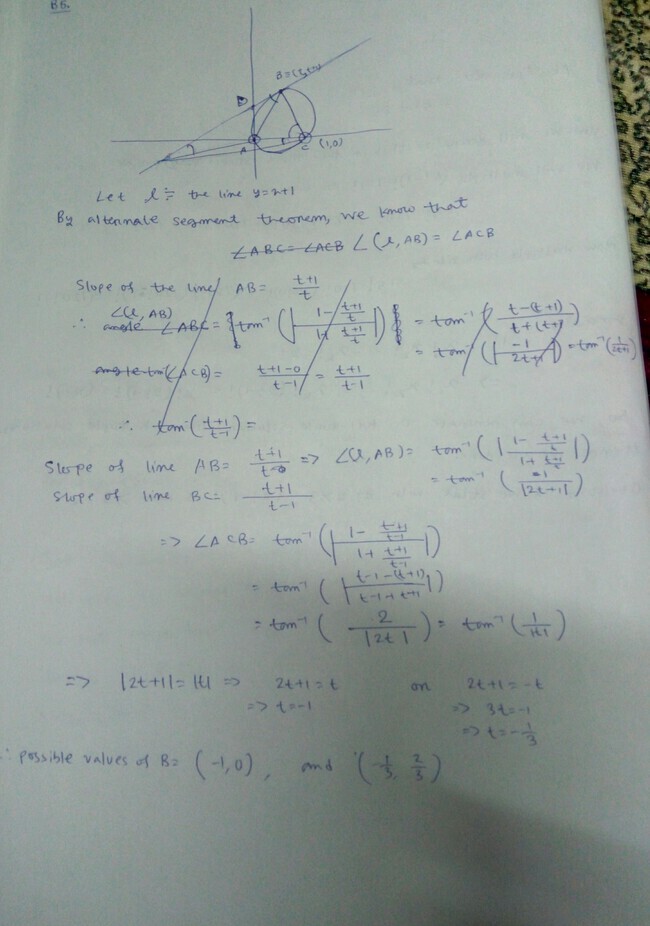 BB.
B=(t,t+1)
D
A
C (1,0)
Let l := the line y=x+1
By alternate segment theorem, we know that
∠ABC=∠ACB ∠(l, AB) = ∠ACB
Slope of the line AB = (t+1)/t
∠(l, AB)
∴ angle ∠ABC = tan⁻¹(|(1-(t+1)/t)/(1+(t+1)/t)|) = tan⁻¹((t-(t+1))/(t+(t+1)))
= tan⁻¹(|-1/(2t+1)|) = tan⁻¹(1/(2t+1))
(∠ACB) = (t+1-0)/(t-1) = (t+1)/(t-1)
∴ tan⁻¹((t+1)/(t-1)) =
Slope of line AB = (t+1)/(t-0) => ∠(l, AB) = tan⁻¹(|(1-(t+1)/t)/(1+(t+1)/t)|)
= tan⁻¹(1/|2t+1|)
Slope of line BC = (t+1)/(t-1)
=> ∠ACB = tan⁻¹(|(1-(t+1)/(t-1))/(1+(t+1)/(t-1))|)
= tan⁻¹(|(t-1-(t+1))/(t-1+t+1)|)
= tan⁻¹(2/|2t|) = tan⁻¹(1/|t|)
=> |2t+1| = |t| => 2t+1 = t or 2t+1 = -t
=> t = -1 => 3t = -1
=> t = -1/3
∴ possible values of B = (-1,0), and (-1/3, 2/3)